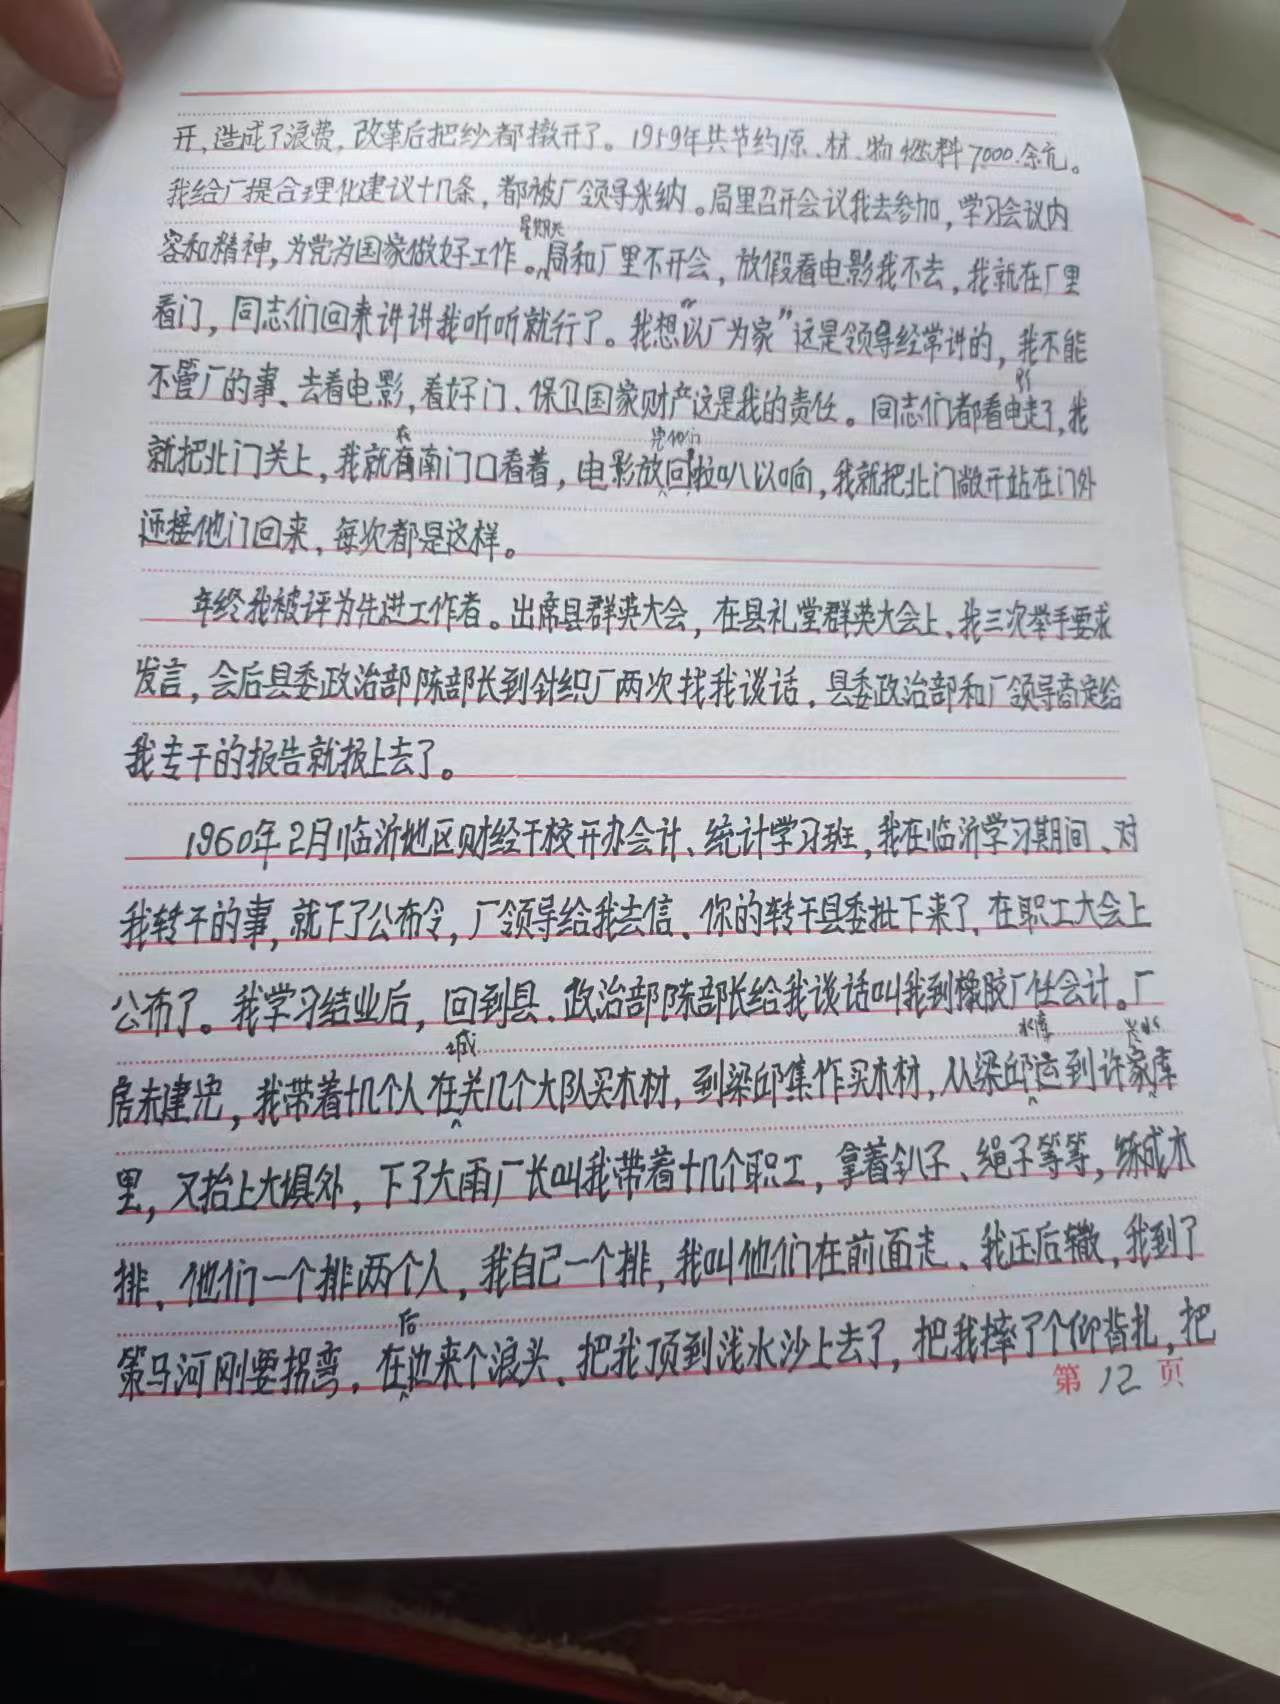 开,造成了浪费,改革后把纱都撤开了。1959年共节约原、材、物燃料7000余元。
我给厂提合理化建议十几条,都被厂领导采纳。局里召开会议我去参加,学习会议内
容和精神,为党为国家做好工作。星期天局和厂里不开会,放假看电影我不去,我就在厂里
看门,同志们回来讲讲我听听就行了。我想“以厂为家”这是领导经常讲的,我不能
不管厂的事、去看电影,看好门、保卫国家财产这是我的责任。同志们都看电影走了,我
就把北门关上,我就在南门口看着,电影放完他们回拉叭以响,我就把北门敞开站在门外
迎接他门回来,每次都是这样。
年终我被评为先进工作者。出席县群英大会,在县礼堂群英大会上、我三次举手要求
发言,会后县委政治部陈部长到针织厂两次找我谈话,县委政治部和厂领导商定给
我专干的报告就报上去了。
1960年2月临沂地区财经干校开办会计、统计学习班,我在临沂学习期间、对
我转干的事,就下了公布令,厂领导给我去信、你的转干县委批下来了,在职工大会上
公布了。我学习结业后,回到县、政治部陈部长给我谈话叫我到橡胶厂任会计。厂
房未建完,我带着十几个人在城关几个大队买木材,到梁邱集作买木材,从梁邱水库运到许家库
里,又抬上大坝外,下了大雨厂长叫我带着十几个职工,拿着钊子、绳子等等,练成木
排,他们一个排两个人,我自己一个排,我叫他们在前面走、我压后辙,我到了
策马河刚要拐弯,在后边来个浪头、把我顶到浅水沙上去了,把我摔了个仰背扎,把
第12页